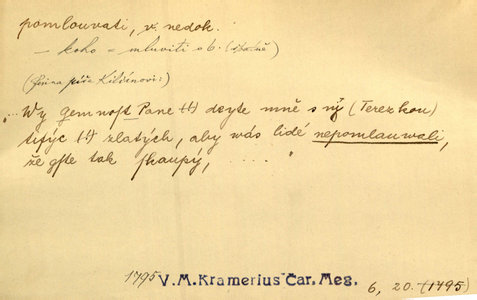 pomlouvati, v. nedok.
— koho = mluviti o b. (špatně)
(Jiřina píše Kiliánovi:)
„Wy Gemnost Pane (!) deyte mně s ní (Terezkou)
tisýc (!) zlatých, aby wás lidé nepomlauwali,
že gste tak skaupý, ....."
1795 V. M. Kramerius Čar. Meg. 6, 20. (1795)